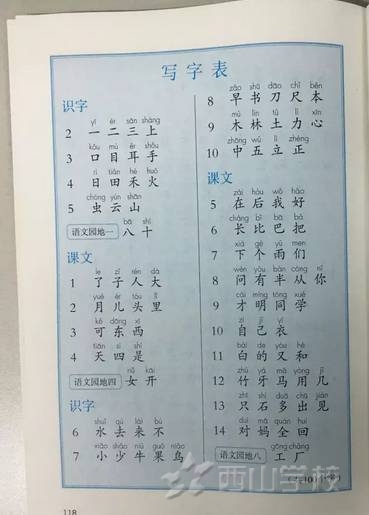 写字表
识字
yī èr sān shàng
2 一 二 三 上
kǒu mù ěr shǒu
3 口 目 耳 手
rì tián hé huǒ
4 日 田 禾 火
chóng yún shān
5 虫 云 山
bā shí
语文园地一 八 十
课文
le zǐ rén dà
1 了 子 人 大
yuè ér tóu lǐ
2 月 儿 头 里
kě dōng xī
3 可 东 西
tiān sì shì
4 天 四 是
nǚ kāi
语文园地四 女 开
识字
shuǐ qù lái bù
6 水 去 来 不
xiǎo shǎo niú guǒ niǎo
7 小 少 牛 果 鸟
zǎo shū dāo chǐ běn
8 早 书 刀 尺 本
mù lín tǔ lì xīn
9 木 林 土 力 心
zhōng wǔ lì zhèng
10 中 五 立 正
课文
zài hòu wǒ hǎo
5 在 后 我 好
cháng bǐ bā bǎ
6 长 比 巴 把
xià gè yǔ men
7 下 个 雨 们
wèn yǒu bàn cóng nǐ
8 问 有 半 从 你
cái míng tóng xué
9 才 明 同 学
zì jǐ yī
10 自 己 衣
bái de yòu hé
11 白 的 又 和
zhú yá mǎ yòng jǐ
12 竹 牙 马 用 几
zhǐ shí duō chū jiàn
13 只 石 多 出 见
duì mā quán huí
14 对 妈 全 回
gōng chǎng
语文园地八 工 厂
100个字
西山学校
118